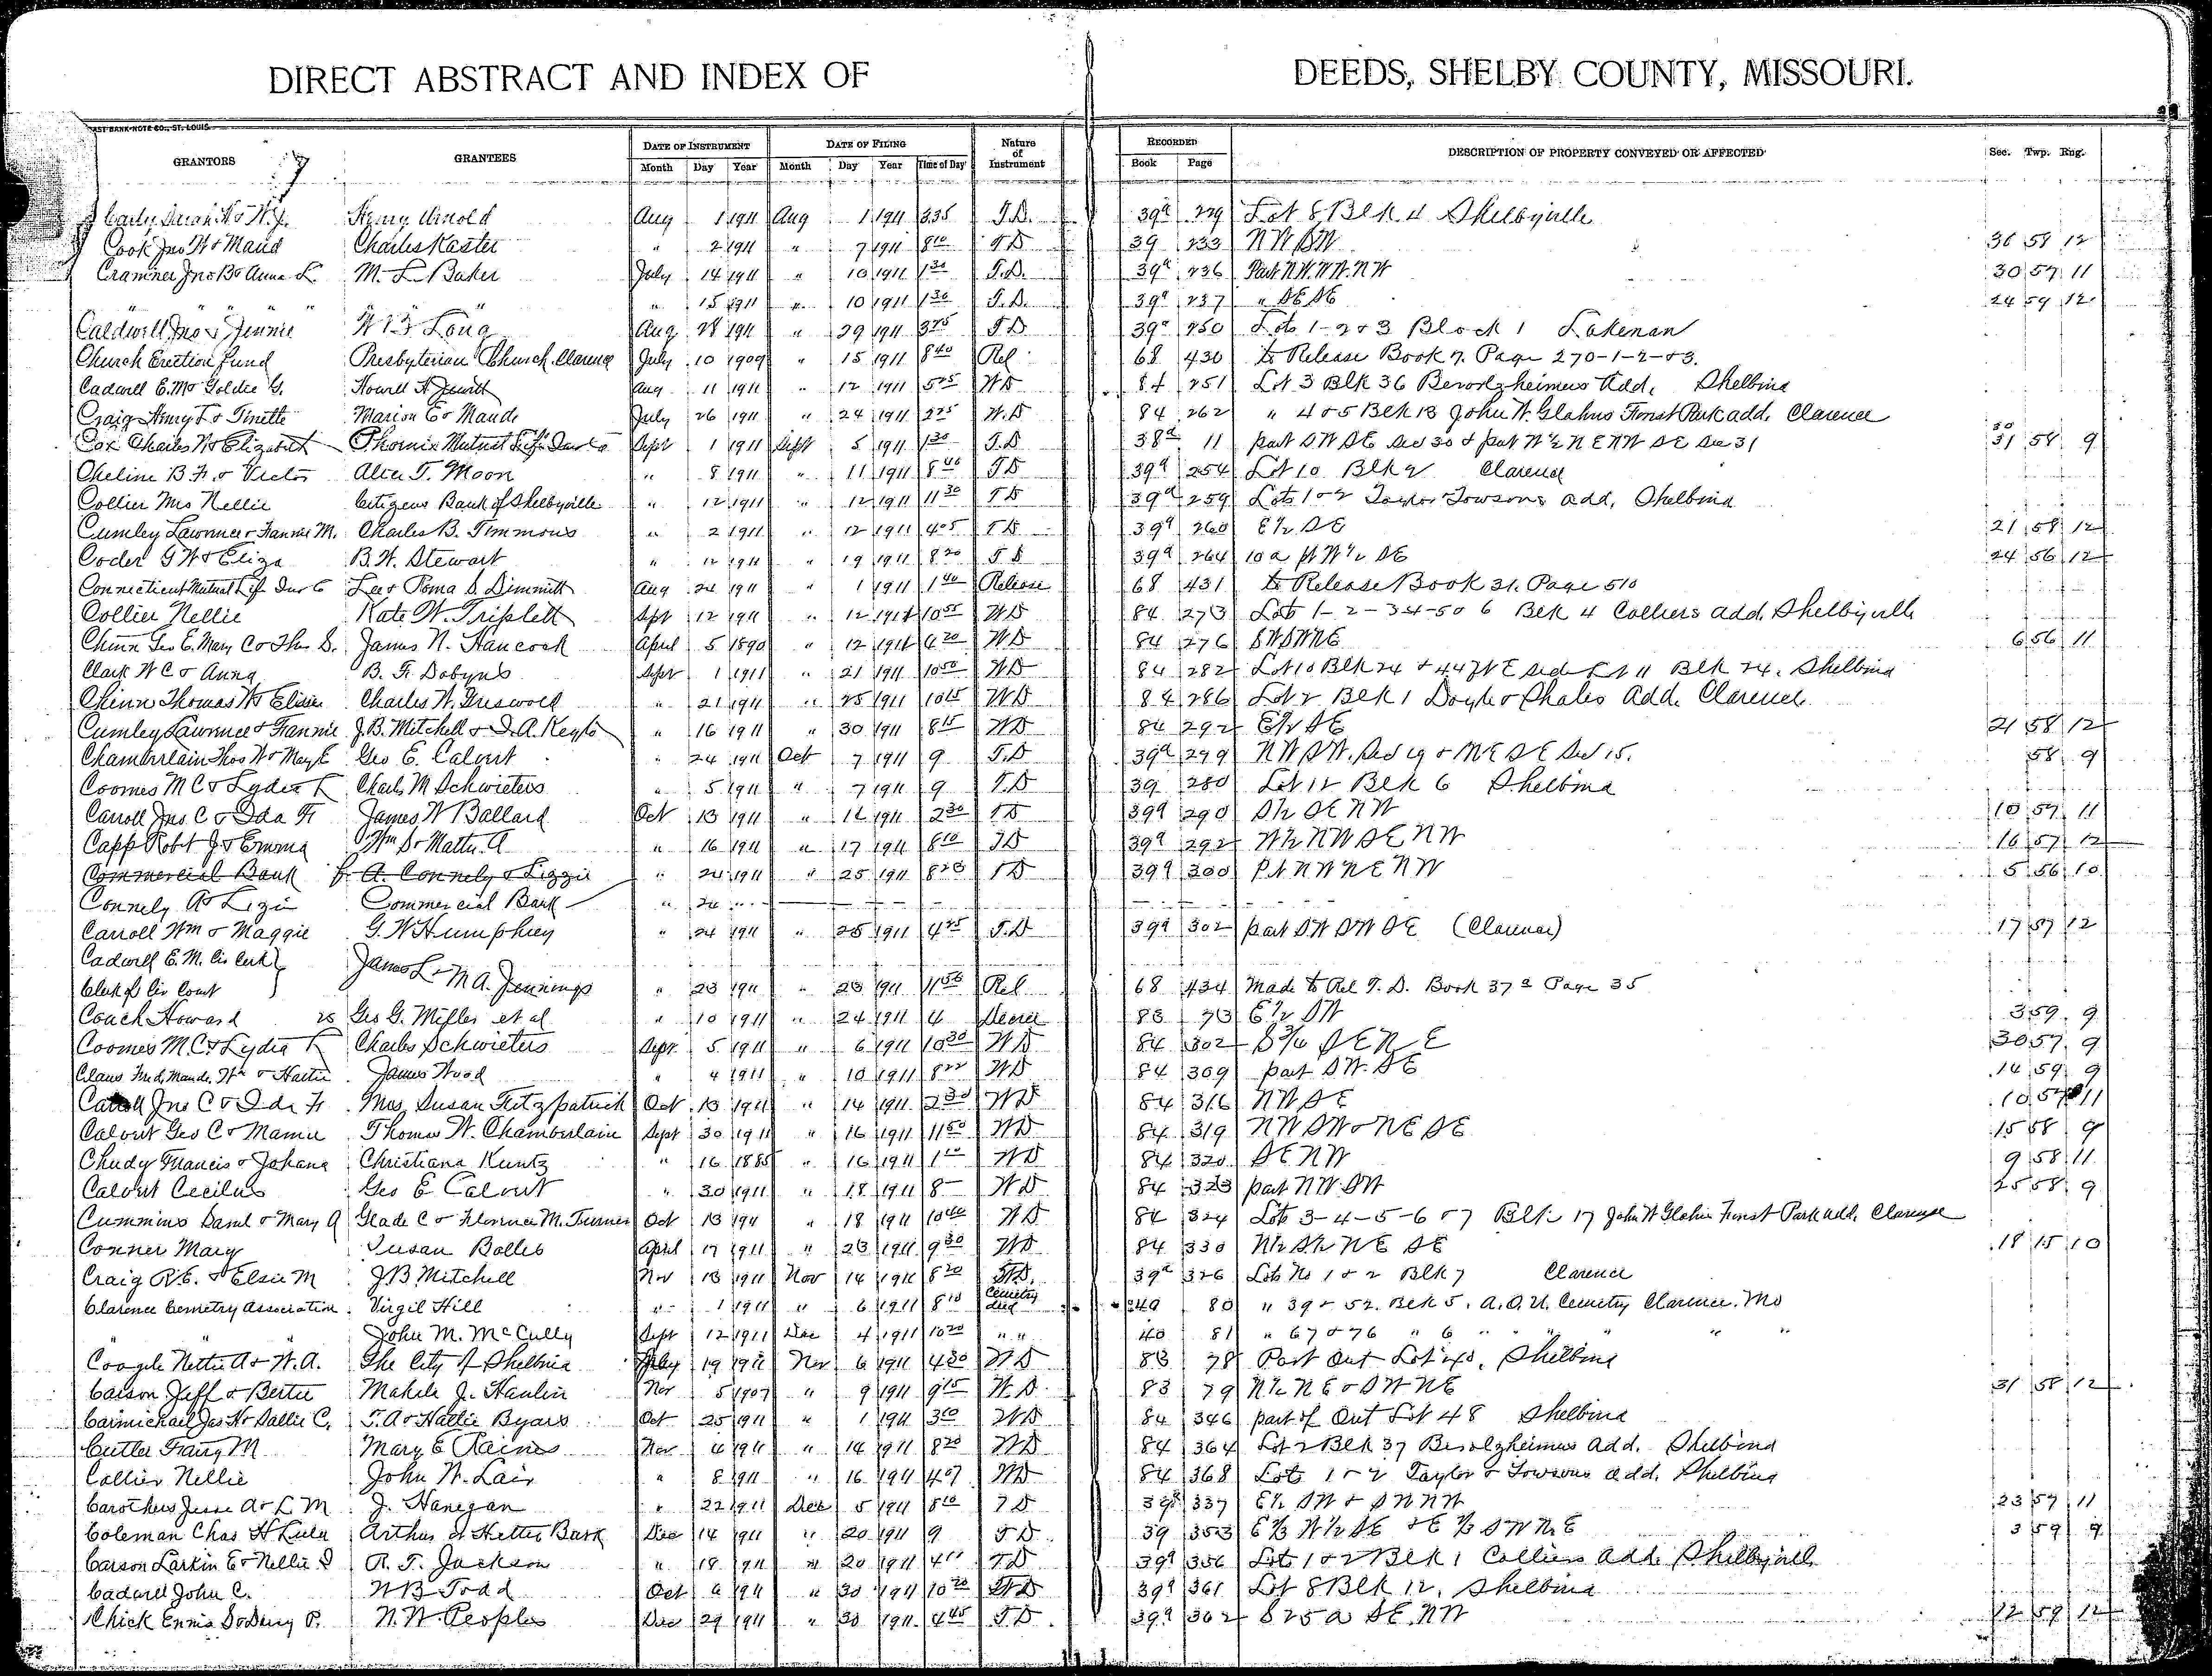 DIRECT ABSTRACT AND INDEX OF DEEDS, SHELBY COUNTY, MISSOURI.
GRANTORS GRANTEES DATE OF INSTRUMENT Month Day Year DATE OF FILING Month Day Year Time of Day Nature of Instrument RECORDED Book Page DESCRIPTION OF PROPERTY CONVEYED OR AFFECTED Sec. Twp. Rng.
Henry Arnold Aug 1 1911 Aug 1 1911 3 35 T.D. 39a 229 Lot 8 Blk 4 Shelbyville
Cook Jno W & Maud Charles Kaster " 2 1911 " 7 1911 8 10 T D 39 233 NW SW 36 58 12
Cramner Jno B & Anna L. M. L. Baker July 14 1911 " 10 1911 1 30 T.D. 39a 236 Part N.W. NW. NW 30 57 11
" " " " 15 1911 " 10 1911 1 30 T.D. 39a 237 " SE SE 24 59 12
Caldwell Jno & Jennie W B Long Aug 28 1911 " 29 1911 3 25 T D 39a 250 Lots 1-2 & 3 Block 1 Lakenan
Church Erection Fund Presbyterian Church Clarence July 10 1909 " 15 1911 8 40 Rel 68 430 to Release Book 7. Page 270-1-2-&3.
Cadwell E.M & Goldie G. Howell H Jewitt Aug 11 1911 " 12 1911 5 25 W D 84 251 Lot 3 Blk 36 Berolzheimers Add, Shelbina
Craig Henry T & Tinette Marion E & Maude July 26 1911 " 24 1911 2 25 W.D 84 262 " 4 & 5 Blk 13 John W. Glahns Forest Park add, Clarence
Cox Charles W & Elizabeth Phoenix Mutual Life Ins Co Sept 1 1911 Sept 5 1911 1 30 T.D 38d 11 part SW SE Sec 30 & part N½ NE NW SE Sec 31 30 31 58 9
Cheline B.F. & Victor Alice T. Moon " 8 1911 " 11 1911 8 40 T D 39a 254 Lot 10 Blk 2 Clarence
Collier Mrs Nellie Citizens Bank of Shelbyville " 12 1911 " 12 1911 11 30 T D 39a 259 Lots 1 & 2 Taylor Towsons add, Shelbina
Cumley Lawrence & Fannie M. Charles B. Timmons " 2 1911 " 12 1911 4 05 T D 39a 260 E½ SE 21 58 12
Coder G W & Eliza B.W. Stewart " 12 1911 " 19 1911 8 20 T D 39a 264 10 a pt W½ SE 24 56 12
Connecticut Mutual Life Ins Co Lee & Roma S. Dimmitt Aug 24 1911 " 1 1911 1 40 Release 68 431 to Release Book 31. Page 510
Collier Nellie Kate W. Triplett Sept 12 1911 " 12 1911 10 55 W D 84 273 Lots 1-2-3-4-5 & 6 Blk 4 Colliers add. Shelbyville
Chinn Geo E. Mary C & Thos S. James N. Hancock April 5 1890 " 12 1911 4 20 W D 84 276 SW SW NE 6 56 11
Clark W C & Anna B. F. Dobyns Sept 1 1911 " 21 1911 10 50 W D 84 282 Lot 10 Blk 24 & 44 ft E side Lot 11 Blk 24. Shelbina
Chinn Thomas W & Elsie Charles W. Griswold " 21 1911 " 25 1911 10 15 W D 84 286 Lot 2 Blk 1 Doyle & Shales Add. Clarence
Cumley Lawrence & Fannie J.B. Mitchell & " 16 1911 " 30 1911 8 15 W D 84 292 E½ SE 21 58 12
Chamberlain Thos W & May E Geo E. Calvert " 24 1911 Oct 7 1911 9 T.D 39a 279 NW SW. Sec 19 & NE SE Sec 15. 58 9
Coomes M C & Lydia F Charles M Schwieters " 5 1911 " 7 1911 9 T.D 39 280 Lot 12 Blk 6 Shelbina
Carroll Jno C & Ida F James W Ballard Oct 13 1911 " 14 1911 2 30 T D 39a 290 S½ SE NW 10 57 11
Capp Robt J & Emma Wm S & Matti A " 16 1911 " 17 1911 8 10 T D 39a 292 W½ NW SE NW 16 57 12
Commercial Bank A Connely & Lizzie " 24 1911 " 25 1911 8 20 T D 39a 300 Pt NW NE NW 5 56 10
Connely A & Lizzie Commercial Bank " 24
Carroll Wm & Maggie G. W Humphrey " 24 1911 " 25 1911 4 25 T.D 39a 302 part SW SW SE (Clarence) 17 57 12
Cadwell E. M. Cir Clerk
Clerk of Cir Court James L & M A. Jennings " 23 1911 " 23 1911 11 50 Rel 68 434 Made to Rel T. D. Book 37a Page 35
Couch Howard vs Geo G. Miller et al " 10 1911 " 24 1911 4 Decree 83 73 E½ SW 3 59 9
Coomes M.C & Lydia F Charles Schwieters Sept 5 1911 " 6 1911 10 30 W D 84 302 S¾ SE NE 30 57 9
Claus Fred, Maude, Wm & Hattie James Wood " 4 1911 " 10 1911 8 22 W D 84 309 part SW. SE 14 59 9
Carroll Jno C & Ida F Mrs Susan Fitzpatrick Oct 13 1911 " 14 1911 2 30 W D 84 316 NW SE 10 57 11
Calvert Geo C & Mamie Thomas W. Chamberlain Sept 30 1911 " 16 1911 11 50 W D 84 319 NW SW & NE SE 15 58 9
Chudy Francis & Johana Christiana Kuntz " 16 1885 " 16 1911 1 00 W D 84 320 SE NW 9 58 11
Calvert Cecilus Geo E Calvert " 30 1911 " 18 1911 8 W D 84 323 part NW SW 25 58 9
Cummins Saml & Mary A Glade C & Florence M. Turner Oct 13 1911 " 18 1911 10 40 W D 84 324 Lots 3-4-5-6 & 7 Blk 17 John W Glahn Forest Park add. Clarence
Conner Mary Susan Bolles April 17 1911 " 23 1911 9 30 W D 84 330 N½ S½ NE SE 18 15 10
Craig R.E. & Elsie M J B Mitchell Nov 13 1911 Nov 14 1911 8 20 T.D. 39a 326 Lots No 1 & 2 Blk 7 Clarence
Clarence Cemetry Association Virgil Hill " 1 1911 " 6 1911 8 10 Cemetry deed 40 80 " 39 & 52. Blk 5. A.O.U. Cemetry Clarence. Mo
" " John M. McCully Sept 12 1911 Dec 4 1911 10 20 " " 40 81 " 67 & 76 " 6 " " " "
Nettie A & W.A. The City of Shelbina July 19 1911 Nov 6 1911 4 30 W D 83 78 Part Out Lot Shelbina
Carson Jeff & Bertie Mahele J. Hanlin Nov 5 1907 " 9 1911 9 15 W.D. 83 79 N½ NE & SW NE 31 58 12
Carmichael Jas H & Sallie C. T.A & Hallie Byars Oct 25 1911 " 1 1911 3 00 W D 84 346 part of Out Lot 48 Shelbina
Cutler Fany M Mary E Raines Nov 4 1911 " 14 1911 8 20 W D 84 364 Lot 2 Blk 37 Berolzheimers add. Shelbina
Collier Nellie John W. Lair " 8 1911 " 16 1911 4 07 W D 84 368 Lots 1 & 2 Taylor & Towsons add. Shelbina
Carothers Jesse A & L M J. Hanegan " 22 1911 Dec 5 1911 8 10 T D 39a 337 E½ SW & SW NW 23 57 11
Coleman Chas H & Lula Arthur & Hettie Bark Dec 14 1911 " 20 1911 9 T D 39 353 E½ W½ SE & E½ SW NE 3 59 9
Carson Larkin E & Nellie R. T. Jackson " 18 1911 " 20 1911 4 T D 39a 356 Lots 1 & 2 Blk 1 Colliers Add. Shelbyville
Cadwell John C. W B Todd Oct 6 1911 " 30 1911 10 20 T D 39a 361 Lot 8 Blk 12. Shelbina
Chick N. W Peoples Dec 29 1911 " 30 1911 4 45 T D 39a 362 825 a SE. NW 12 59 12